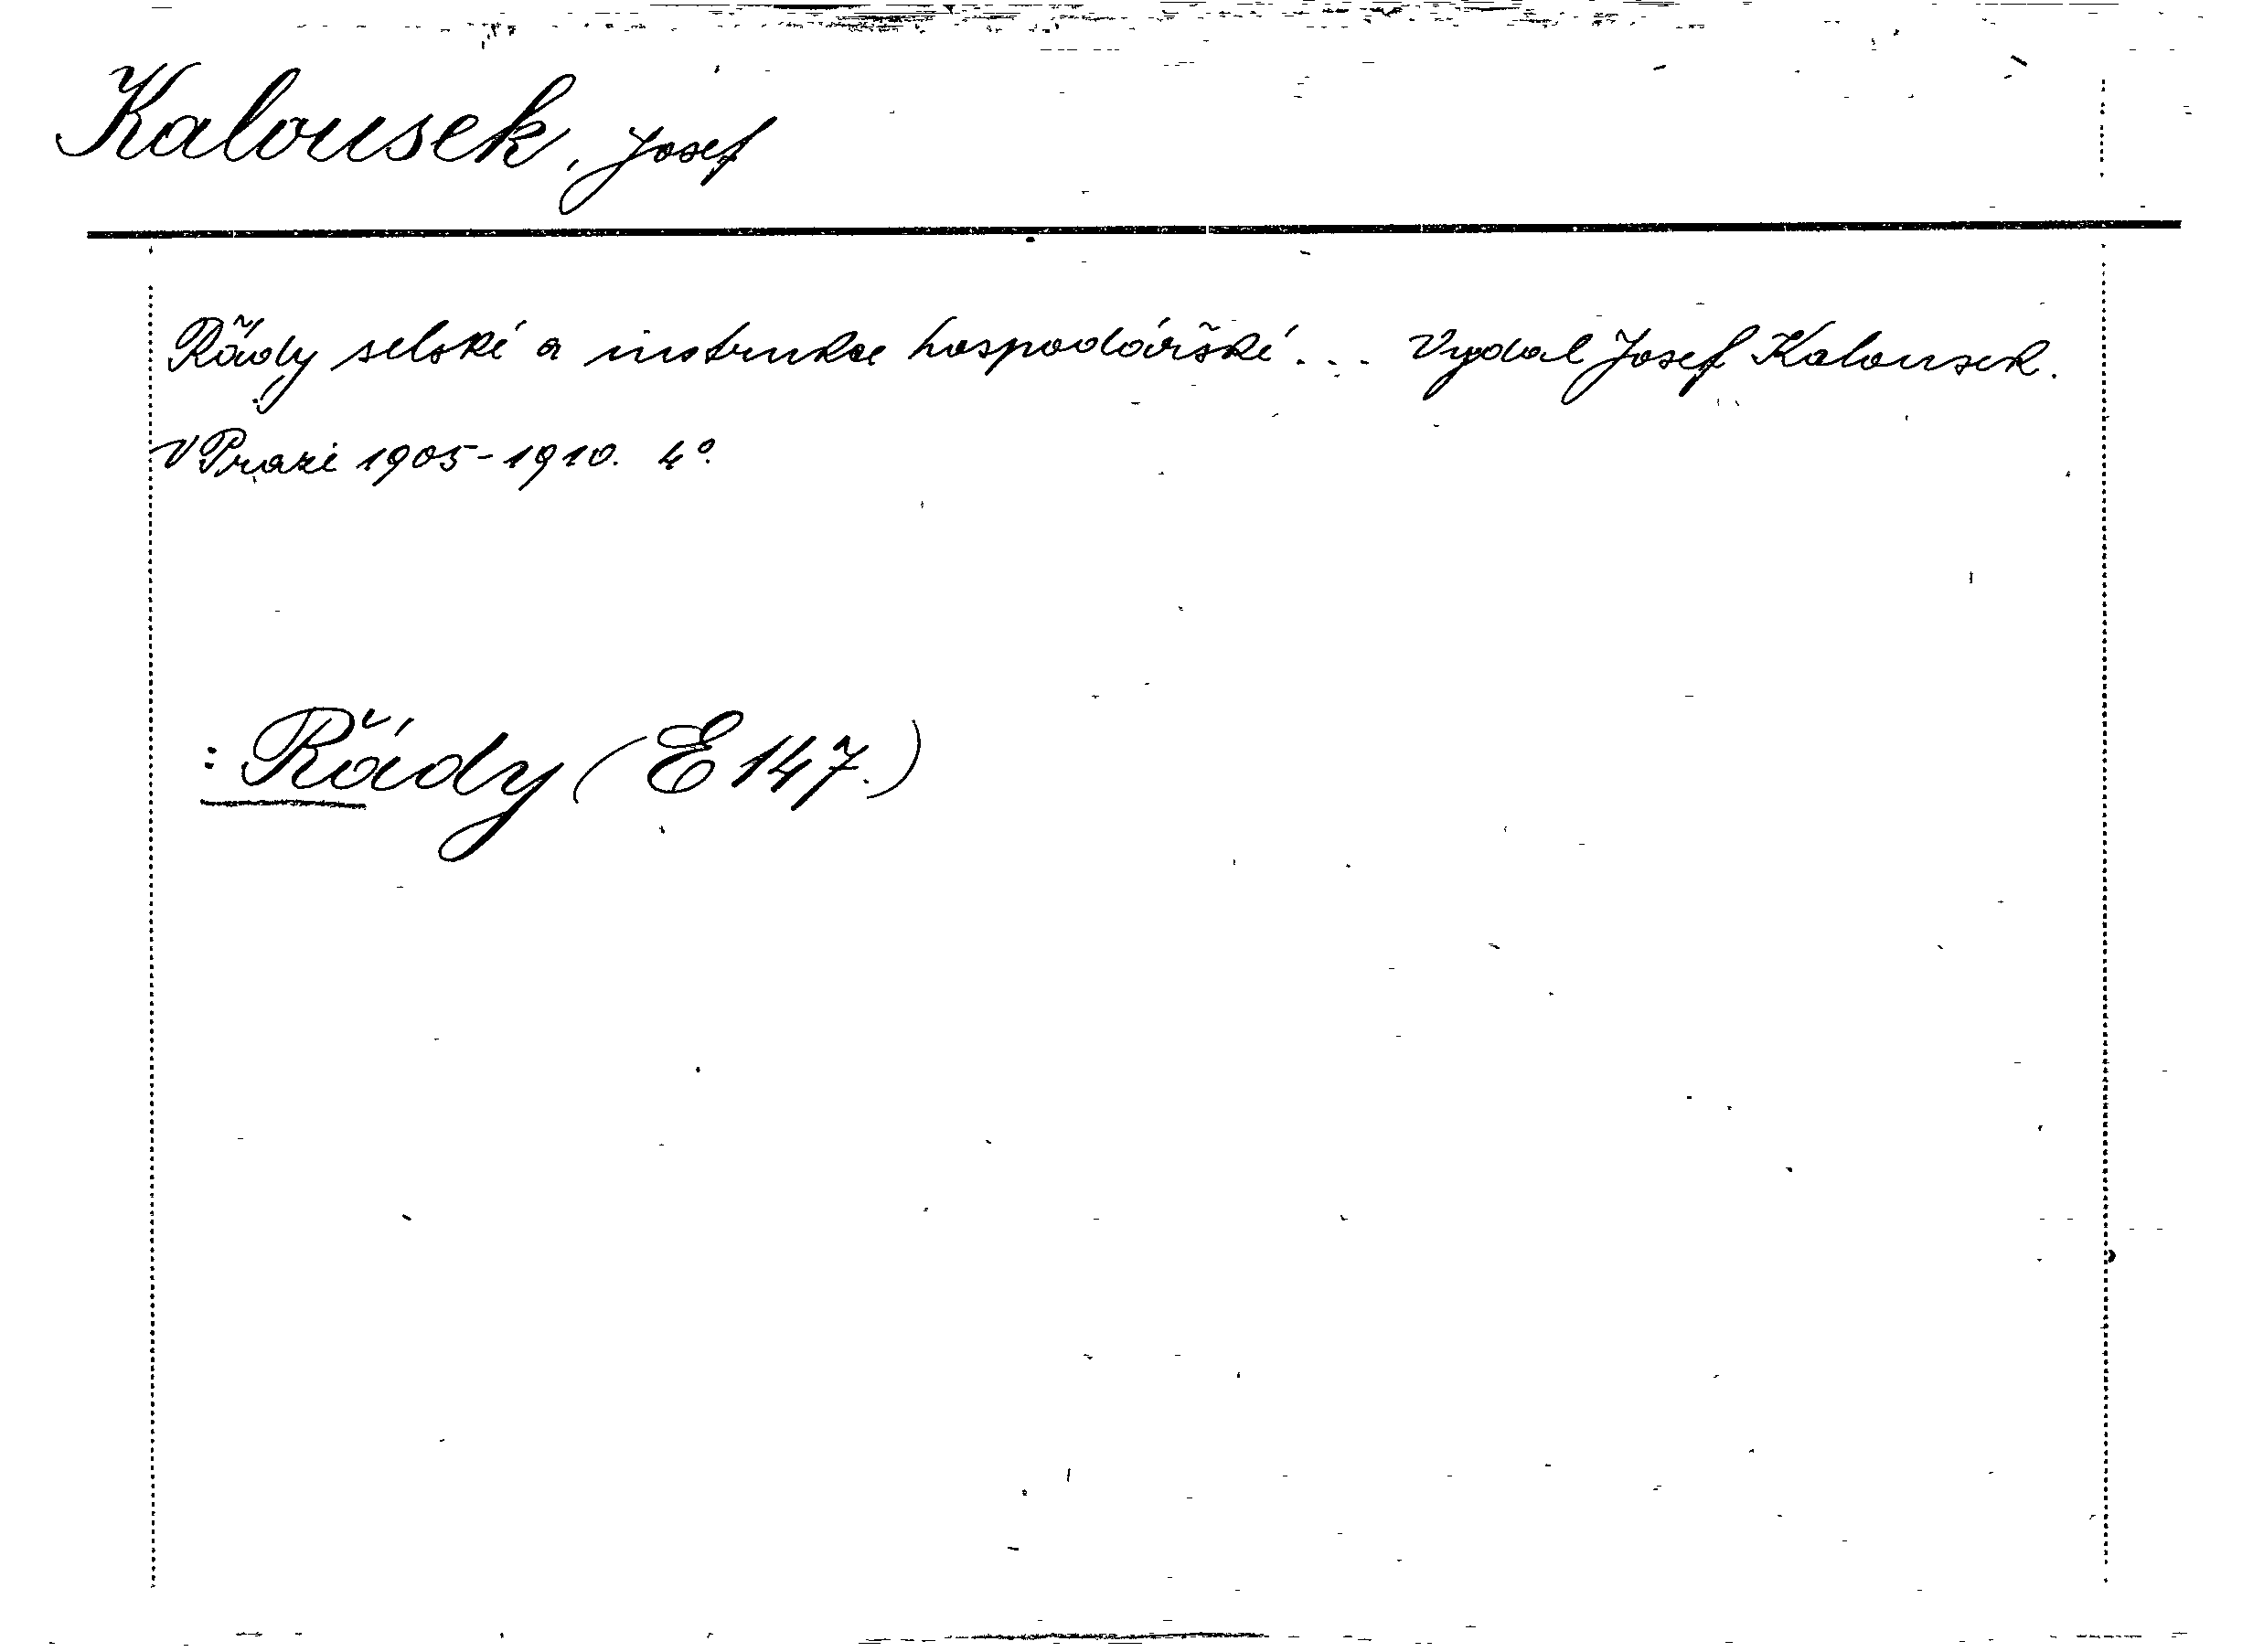 Kalousek, Josef
Řády selské a instrukce hospodářské... Vydal Josef Kalousek.
V Praze 1905-1910. 4°.
: Řády (E 147.)